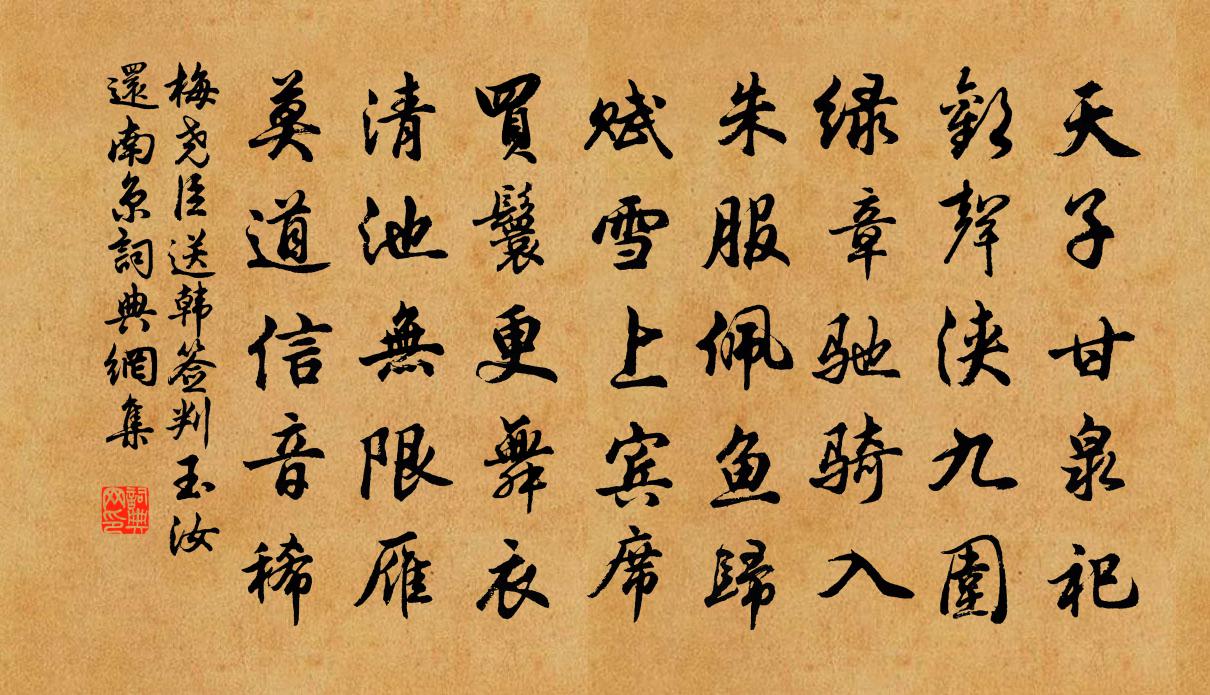 天子甘泉祀
歡聲浹九圍
緑章馳騎入
朱服佩魚歸
賦雪上賓席
買鬟更舞衣
清池無限雁
莫道信音稀
梅尧臣送韩签判玉汝
還南京詞典網集
詞典网印